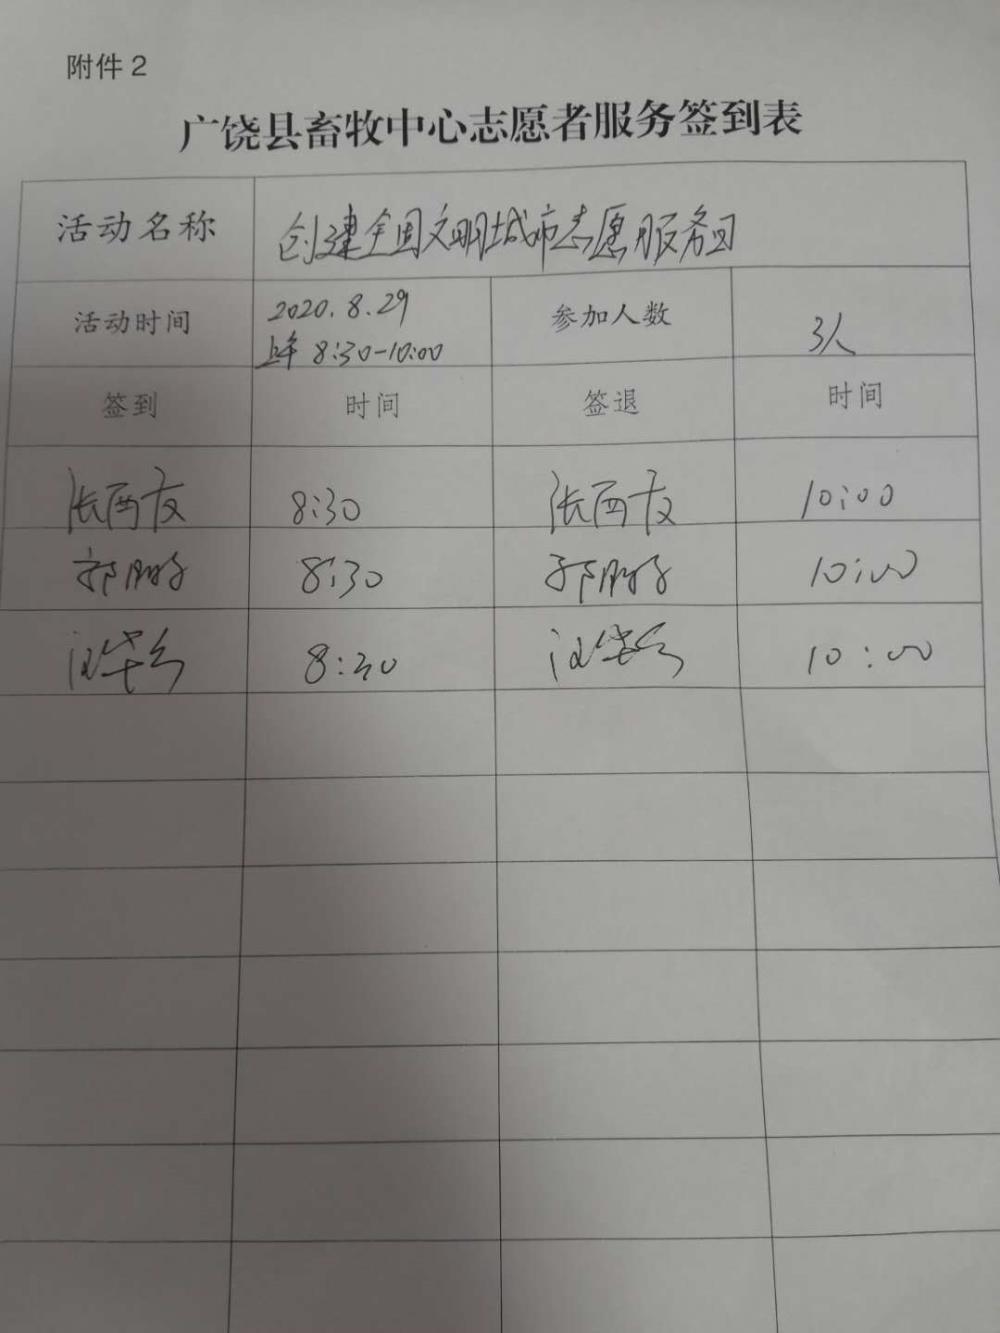 附件2
广饶县畜牧中心志愿者服务签到表
活动名称 创建全国文明城市志愿服务日
活动时间 2020.8.29 上午 8:30-10:00 参加人数 3人
签到 时间 签退 时间
张西友 8:30 张西友 10:00
郭 8:30 郭 10:00
8:30 10:00